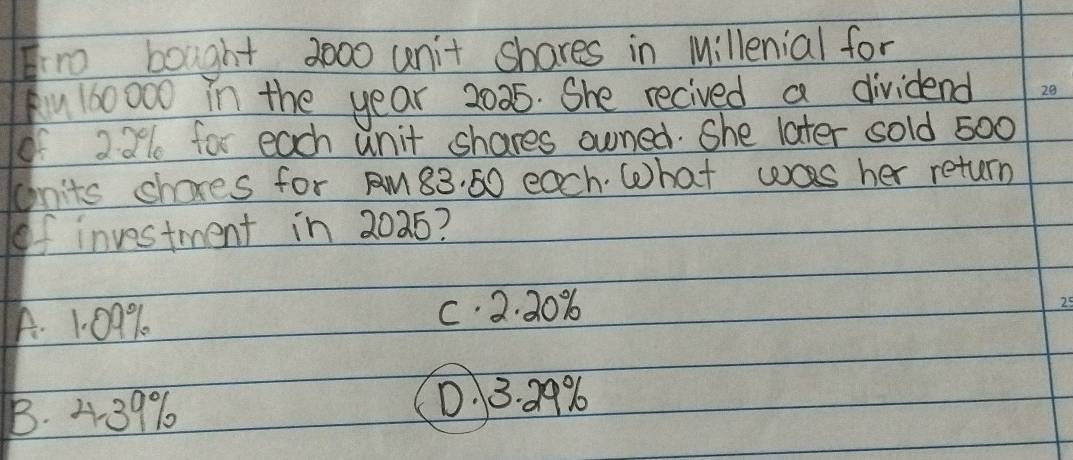 Erno bought 2000 unit shares in Millenial for
RM 160 000 in the year 2025. She recived a dividend
20
of 2.2% for each unit shares owned. She later sold 500
units shares for RM 83.50 each. What was her return
of investment in 2025?
A. 1.09%
C. 2.20%
25
B. 4.39%
D. 3.29%